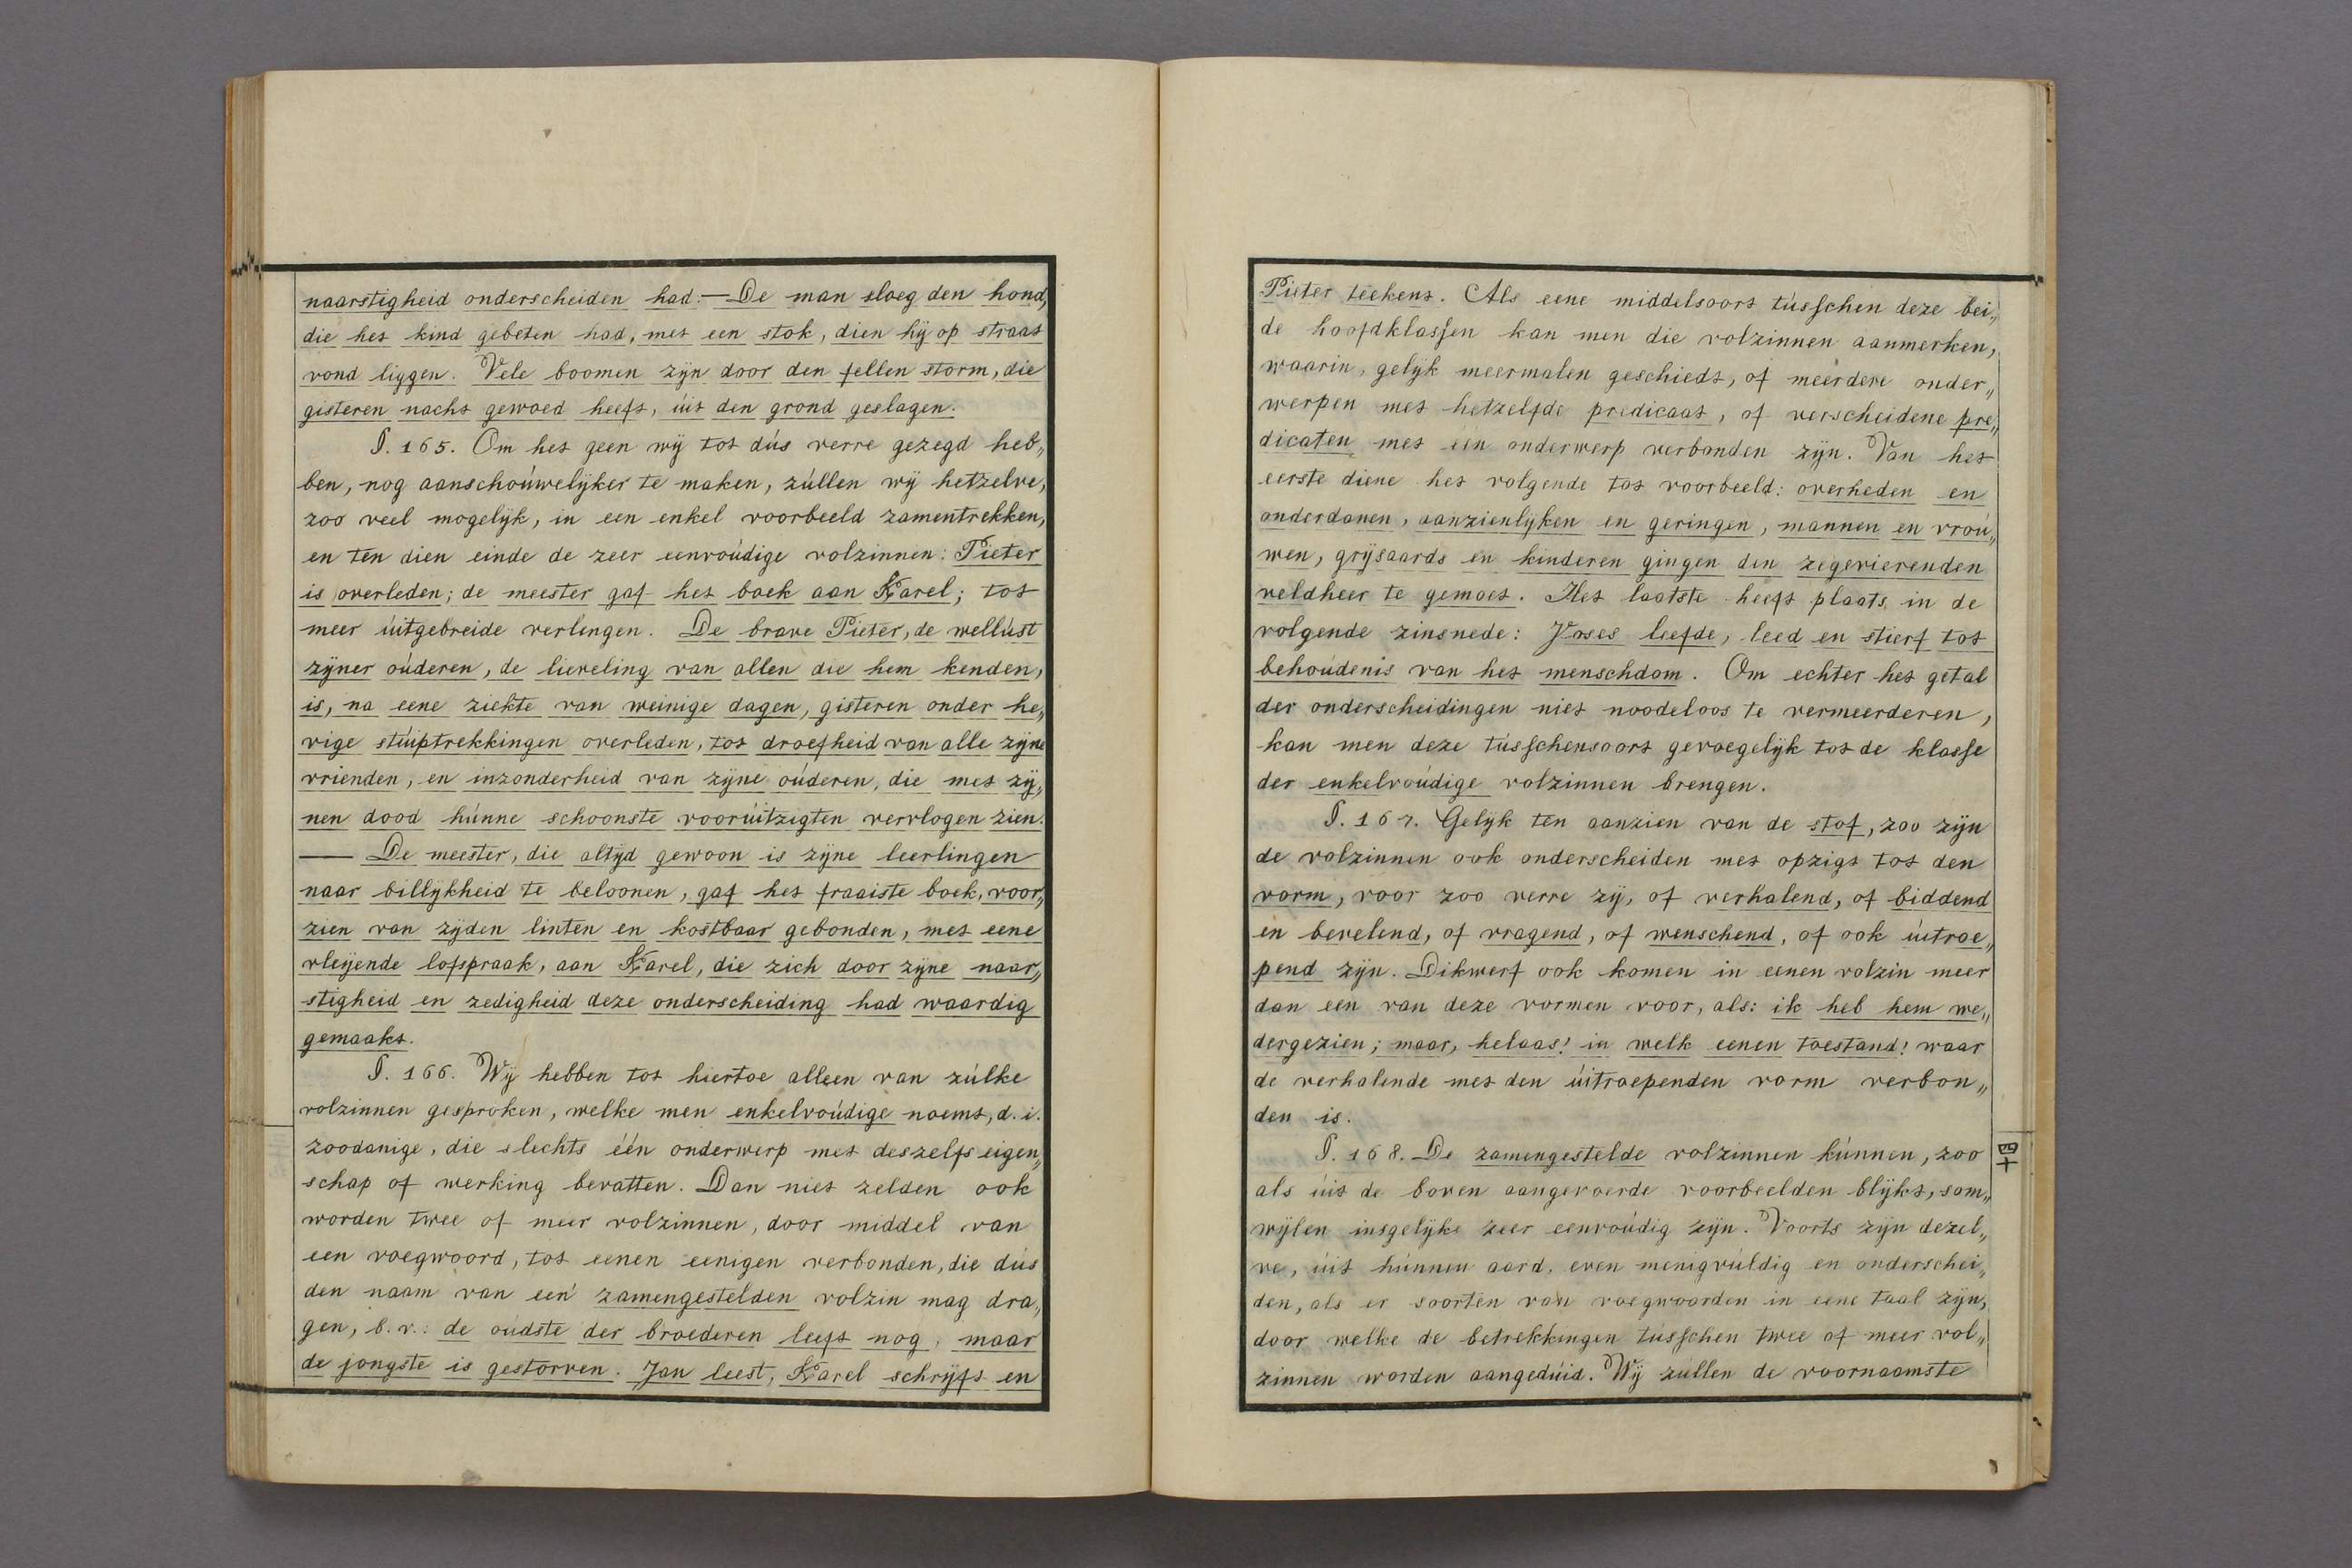 naarstigheid onderscheiden had:—De man sloeg den hond,
die het kind gebeten had, met een stok, dien hij op straat
vond liggen. Vele boomen zijn door den fellen storm, die
gisteren nacht gewoed heeft, úit den grond geslagen.
§. 165. Om het geen wij tot dús verre gezegd heb„
ben, nog aanschoúwelijker te maken, zúllen wij hetzelve,
zoo veel mogelijk, in een enkel voorbeeld zamentrekken,
en ten dien einde de zeer eenvoúdige volzinnen: Pieter
is overleden; de meester gaf het boek aan Karel; tot
meer úitgebreide verlengen. De brave Pieter, de wellúst
zijner oúderen, de lieveling van allen die hem kenden,
is, na eene ziekte van weinige dagen, gisteren onder he„
vige stúiptrekkingen overleden, tot droefheid van alle zijne
vrienden, en inzonderheid van zijne oúderen, die met zij„
nen dood húnne schoonste voorúitzigten vervlogen zien.
— De meester, die altijd gewoon is zijne leerlingen
naar billijkheid te beloonen, gaf het fraaiste boek, voor„
zien van zijden linten en kostbaar gebonden, met eene
vleijende lofspraak, aan Karel, die zich door zijne naar„
stigheid en zedigheid deze onderscheiding had waardig
gemaakt.
§. 166. Wij hebben tot hiertoe alleen van zúlke
volzinnen gesproken, welke men enkelvoúdige noemt, d. i.
zoodanige, die slechts één onderwerp met deszelfs eigen„
schap of werking bevatten. Dan niet zelden ook
worden twee of meer volzinnen, door middel van
een voegwoord, tot eenen eenigen verbonden, die dús
den naam van een' zamengestelden volzin mag dra„
gen, b. v.: de oúdste der broederen leeft nog, maar
de jongste is gestorven. Jan leest, Karel schrijft en
Pieter teekent. Als eene middelsoort tússchen deze bei„
de hoofdklassen kan men die volzinnen aanmerken,
waarin, gelijk meermalen geschiedt, of meerdere onder„
werpen met hetzelfde predicaat, of verscheidene pre„
dicaten met één onderwerp verbonden zijn. Van het
eerste diene het volgende tot voorbeeld: overheden en
onderdanen, aanzienlijken en geringen, mannen en vroú„
wen, grijsaards en kinderen gingen den zegevierenden
veldheer te gemoet. Het laatste heeft plaats in de
volgende zinsnede: Joses leefde, leed en stierf tot
behoúdenis van het menschdom. Om echter het getal
der onderscheidingen niet noodeloos te vermeerderen,
kan men deze tússchensoort gevoegelijk tot de klasse
der enkelvoúdige volzinnen brengen.
§. 167. Gelijk ten aanzien van de stof, zoo zijn
de volzinnen ook onderscheiden met opzigt tot den
vorm, voor zoo verre zij, of verhalend, of biddend
en bevelend, of vragend, of wenschend, of ook úitroe„
pend zijn. Dikwerf ook komen in eenen volzin meer
dan een van deze vormen voor, als: ik heb hem we„
dergezien; maar, helaas! in welk eenen toestand! waar
de verhalende met den úitroependen vorm verbon„
den is.
§. 168. De zamengestelde volzinnen kúnnen, zoo
als úit de boven aangevoerde voorbeelden blijkt, som„
wijlen insgelijks zeer eenvoúdig zijn. Voorts zijn dezel„
ve, úit húnnen aard, even menigvúldig en onderschei„
den, als er soorten van voegwoorden in eene taal zijn,
door welke de betrekkingen tússchen twee of meer vol„
zinnen worden aangedúid. Wij zúllen de voornaamste
四十